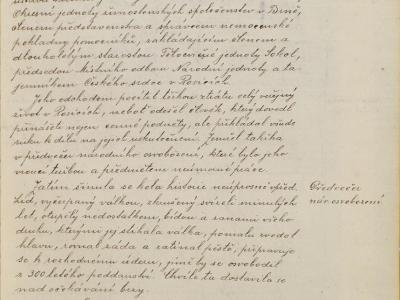 tkusní jednoty živnostenských společenstev v Brně,
členem představenstva a správcem nemocenské
pokladny pomocníků, zakládajícím členem a
dlouholetým starostou Tělocvičné jednoty Sokol,
předsedou Místního odboru Národní jednoty a ta-
jemníkem Českého srdce v Pozořicích.
Jeho odchodem pocítil těžkou ztrátu celý veřejný
život v Pozořicích, neboť odešel člověk, který dovedl
přinášeti nejen cenné podněty, ale přikládal všude
ruku k dílu na jejich uskutečnění. Zemřel takřka
v předvečer národního osvobození, které bylo jeho
vroucí tužbou a předmětem neúmorné práce.
Zatím šinula se kola historie neúprosně vpřed.
Lid, vyčerpaný válkou, zkušený svízeli minulých
let, otupělý nedostatkem, bídou a ranami všeho
druhu, kterými jej stíhala válka, pomalu zvedal
hlavu, rovnal záda a zatínal pěstě, připravuje
se k rozhodnému úderu, jímž by se osvobodil
z 300 letého poddanství. Chvíle ta dostavila se
nad očekávání brzy.
Předvečer
nár. osvobození